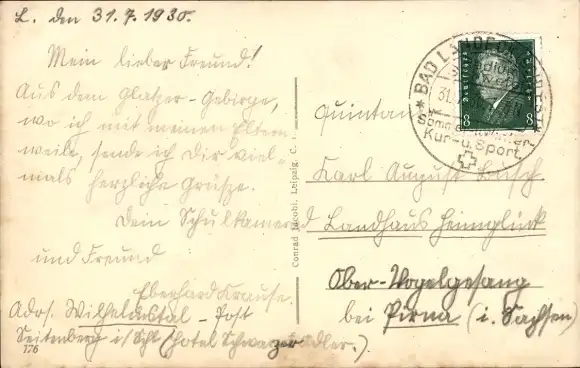 L. den 31.7.1930.
Mein lieber Freund!
Aus dem Glatzer-Gebirge,
wo ich mit meinen Eltern
weile, sende ich Dir viel-
mals herzliche Grüsze.
Dein Schulkamerad
und Freund
Eberhard Krause.
Adr. Wilhelmstal - Post
Seitenberg i/Schl (Hotel Schwarzer Adler.)
776
Conrad Jacobi, Leipzig. C.
BAD LANDECK
31.
Sommer- Winter-
Kur- u. Sport
Deutsches Reich
8 8
Quintaner
Karl August
Landhaus Heimglück
Ober-Vogelgesang
bei Pirna (i. Sachsen)